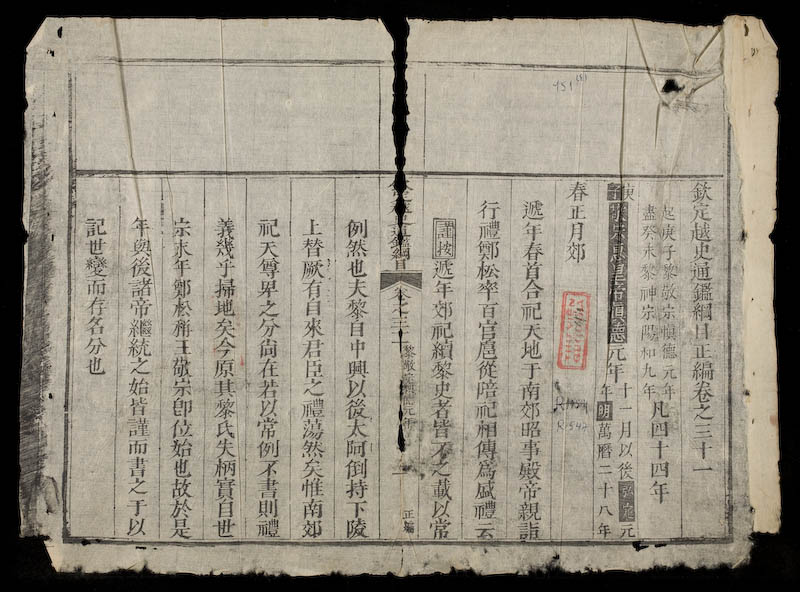 欽定越史通鑑綱目正編卷之三十一
起庚子黎敬宗慎德元年
盡癸未黎神宗陽和九年
凡四十四年
庚子黎敬宗惠皇帝慎德元年
十一月以後弘定元
年明萬曆二十八年
春正月郊
遞年春首合祀天地于南郊昭事殿帝親詣
行禮鄭松率百官扈從陪祀相傳爲盛禮云
謹按遞年郊祀續黎史者皆不之載以常
通鑑綱目
卷之三十一
黎敬宗慎德元年
一
正編
例然也夫黎自中興以後太阿倒持下陵
上替厥有自來君臣之禮蕩然矣惟南郊
祀天尊卑之分尚在若以常例不書則禮
義幾乎掃地矣今原其黎氏失柄實自世
宗末年鄭松稱王敬宗卽位始也故於是
年與後諸帝繼統之始皆謹而書之于以
記世變而存名分也
451